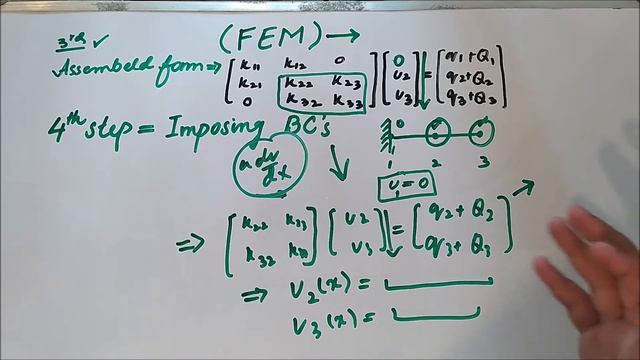 3rd ✓
(FEM) →
Assembeld form ⇒ [K11 K12 0; K21 K22 K23; 0 K32 K33] [0; U2; U3] = [q1+Q1; q2+Q2; q3+Q3]
4th step = Imposing BC's
0
1 2 3
a du/dx
U1 = 0
⇒ [K22 K33; K32 K33] [U2; U3] = [q2 + Q2; q3 + Q3]
⇒ U2(x) =
U3(x) =